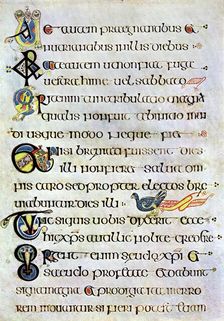 Uae autem praegnantibus &
nutrientibus in illis diebus
Orate autem ut non fiat fuga
uestra hieme uel sabbato
Erit enim tunc tribulatio magna
qualis non fuit ab initio mun
di usque modo neque fiet
Et nisi breuiati fuissent dies
illi non fieret salua om
nis caro sed propter electos bre
uiabuntur dies illi
Tunc si quis uobis dixerit ecce
hic xps aut illic nolite credere
Surgent enim seudo xpi &
seudo profetae & dabunt
signa magna & prodigia ita ut in erro
rem si fieri potest